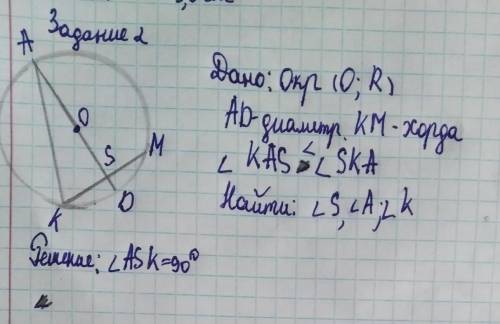 Задание 2
A
Дано: Окр (O; R)
O
AD-диаметр. KM-хорда
S
M
∠ KAS < ∠SKA
K
D
Найти: ∠S, ∠A; ∠K
Решение: ∠ASK=90°